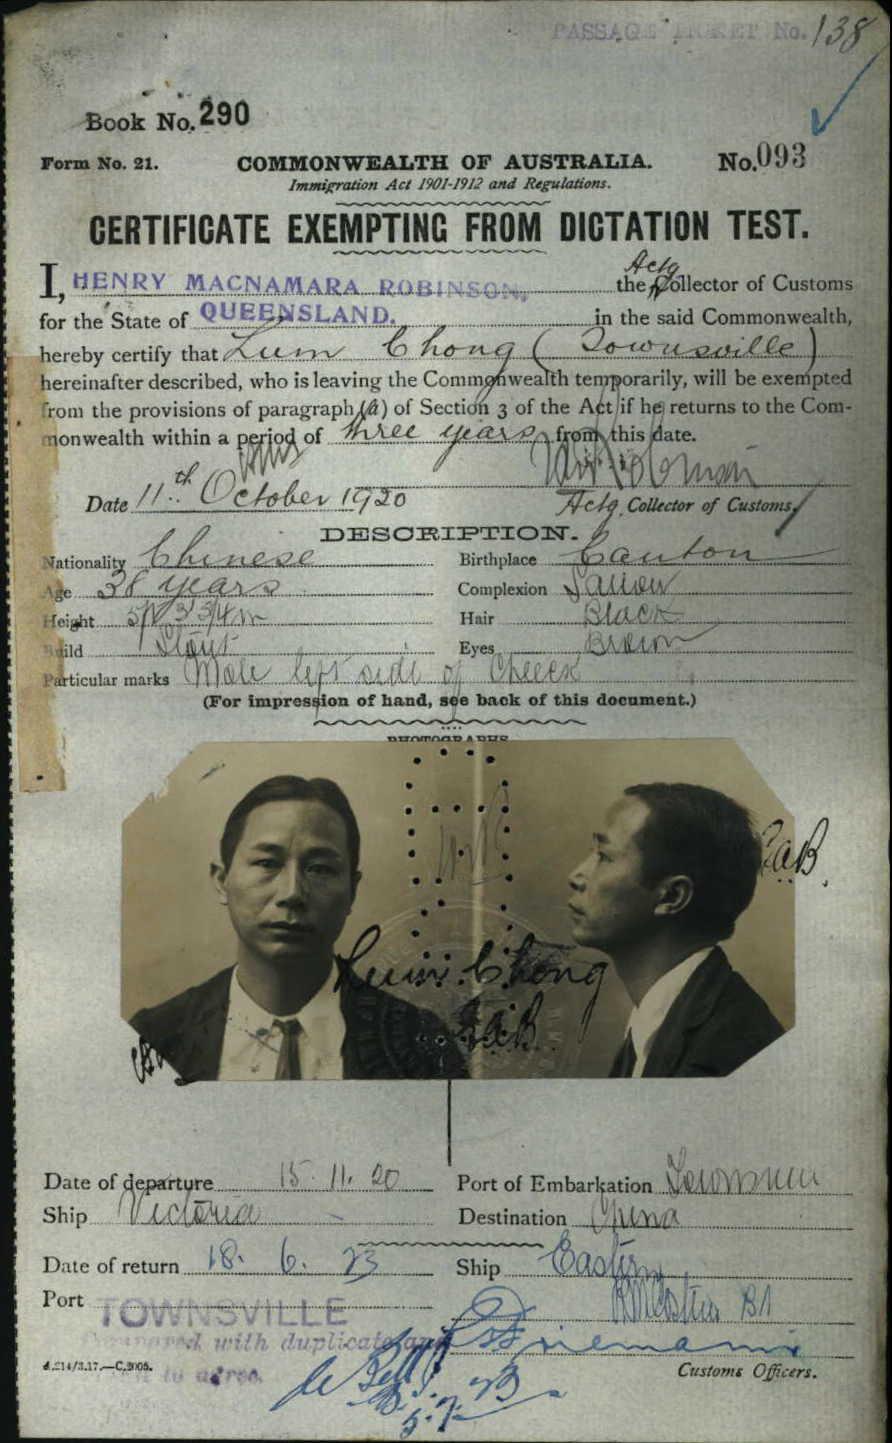 PASSAGE TICKET No. 138
Book No. 290
Form No. 21. COMMONWEALTH OF AUSTRALIA. No. 093
Immigration Act 1901-1912 and Regulations.
CERTIFICATE EXEMPTING FROM DICTATION TEST.
I, HENRY MACNAMARA ROBINSON, the Actg Collector of Customs
for the State of QUEENSLAND. in the said Commonwealth,
hereby certify that Lum Chong (Townsville)
hereinafter described, who is leaving the Commonwealth temporarily, will be exempted
from the provisions of paragraph (a) of Section 3 of the Act if he returns to the Com-
monwealth within a period of three years from this date.
Date 11th October 1920 Actg. Collector of Customs.
DESCRIPTION.
Nationality Chinese Birthplace Canton
Age 38 years Complexion Sallow
Height 5ft 3 3/4 in Hair Black
Build Stout Eyes Brown
Particular marks Mole left side of cheek
(For impression of hand, see back of this document.)
PHOTOGRAPHS
Lum Chong
Date of departure 15. 11. 20 Port of Embarkation Townsville
Ship Victoria Destination China
Date of return 18. 6. 23 Ship Eastern
Port TOWNSVILLE
Compared with duplicate and
to agree.
A.214/3.17.—C.2005. Customs Officers.